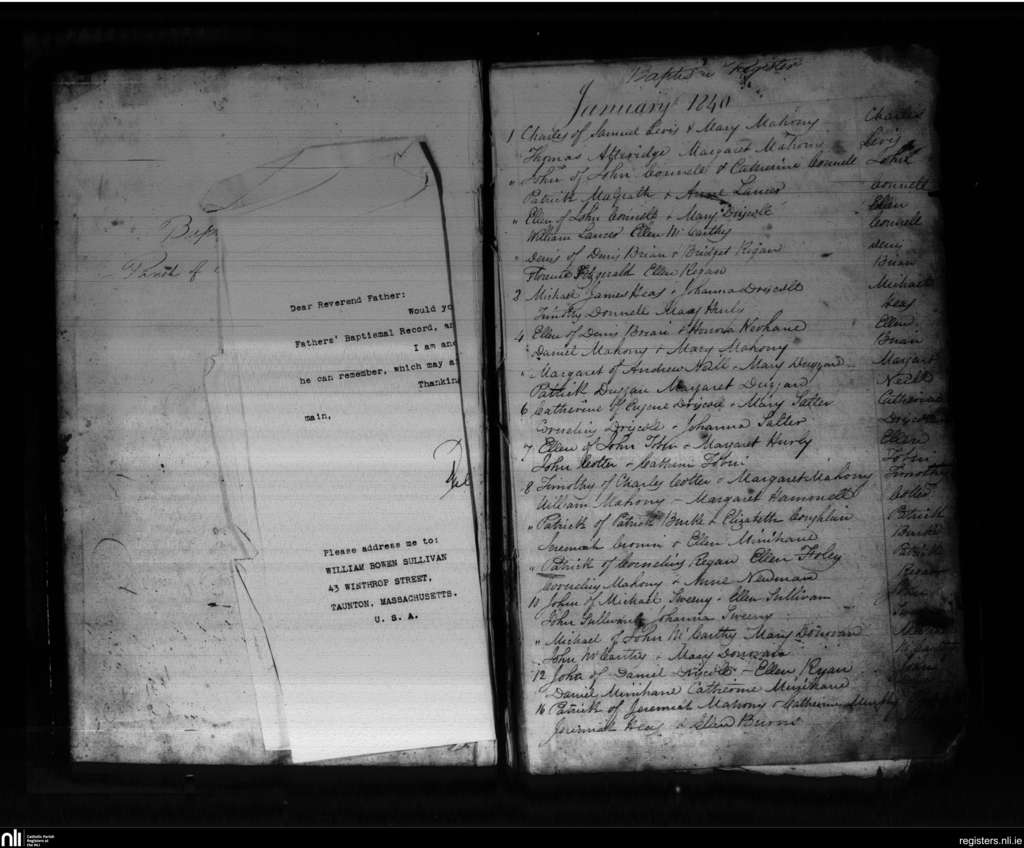 Dear Reverend Father:
Would yo
Fathers' Baptismal Record, an
I am anx
he can remember, which may a
Thankin
main,
Please address me to:
WILLIAM BOWEN SULLIVAN
43 WINTHROP STREET,
TAUNTON, MASSACHUSETTS.
U. S. A.
Register
January 1840
1 Charles of Samuel Levis & Mary Mahony Charles
Thomas Margaret Mahony Levis
" John of John Connell & Catherine Connell John
Patrick & Anne Lances Connell
" Ellen of John Connell & Mary Driscoll Ellen
William Lances Ellen McCarthy Connell
" Denis of Denis Brian & Bridget Regan Deny
Florence Fitzgerald Ellen Regan Brian
2 Michael James Heas & Johanna Driscoll Michael
Timothy Donnell Mary Hurly Heas
4 Ellen of Denis & Honora Keohane Ellen
Daniel Mahony & Mary Mahony Brian
" Margaret of Andrew & Mary Duggan Margaret
Patrick Duggan Margaret Duggan
6 Catherine of Eugene Driscoll & Mary Salter Catherine
Cornelius Driscoll & Johanna Salter Driscoll
7 Ellen of John Tobin & Margaret Hurly Ellen
John Cotter & Tobin
8 Timothy of Charles Cotter & Margaret Mahony Timothy
William Mahony - Margaret Cotter
" Patrick of Patrick Burke & Elizabeth Coughlan Patrick
Jeremiah Cronin & Ellen Minihane Burke
" Patrick of Cornelius Regan Ellen Foley Patrick
Cornelius Mahony & Anne Newman Regan
10 John of Michael Sweeny & Ellen Sullivan John
John Sullivan & Johanna Sweeny
" Michael of John McCarthy Mary Donovan
John McCarthy & Mary Donovan
12 John of Daniel Driscoll - Ellen Ryan
Daniel Minihane Catherine Minihane
16 Patrick of Jeremiah Mahony & Catherine
Jeremiah & Ellen
nli
Catholic Parish
Registers at
the NLI
registers.nli.ie